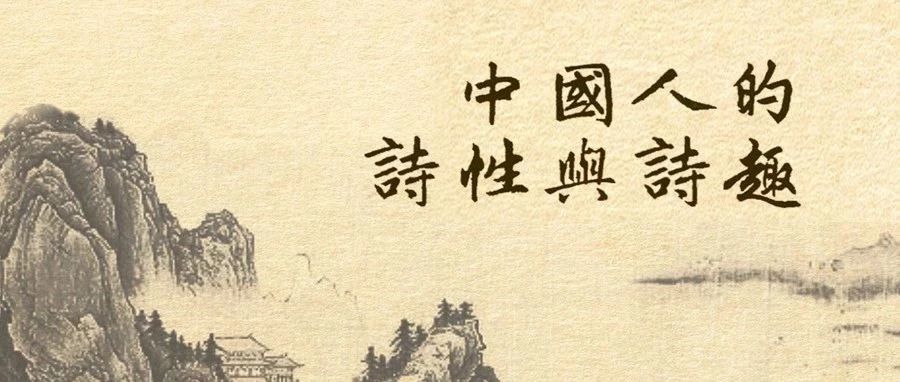 中國人的
詩性與詩趣